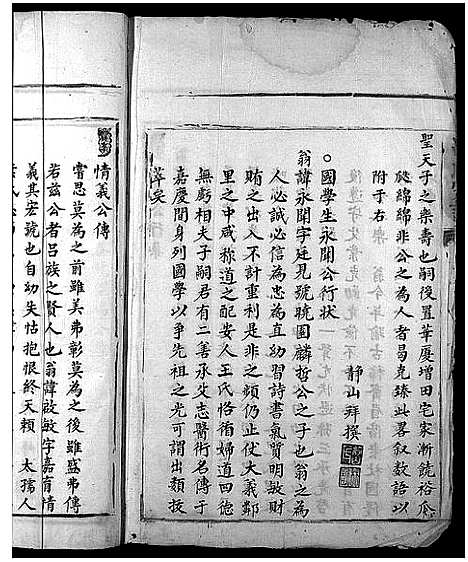 聖天子之樂壽也嗣後置華廈增田宅家漸饒裕瓜
瓞綿綿非公之為人者曷克臻此畧叙数語以
附于右
靜山拜撰
○國學生永開公行狀
翁諱永開字廷見號曉園麟哲公之子也翁之為
人必誠必信為忠為直幼習詩書氣質明敏財
賄之出入不計重利是非之頻仍止仗大義鄰
里之中咸稱道之配安人王氏恪循婦道四德
無虧相夫子嗣君有二善承父志醫術名傳于
嘉慶間身列國學以爭先祖之光可謂出類拔
萃矣
情義公傳
嘗思莫為之前雖美弗彰莫為之後雖盛弗傳
若兹公者吕族之賢人也翁諱啟敏字嘉有情
義其宏號也自幼失怙抱恨終天賴 太孺人